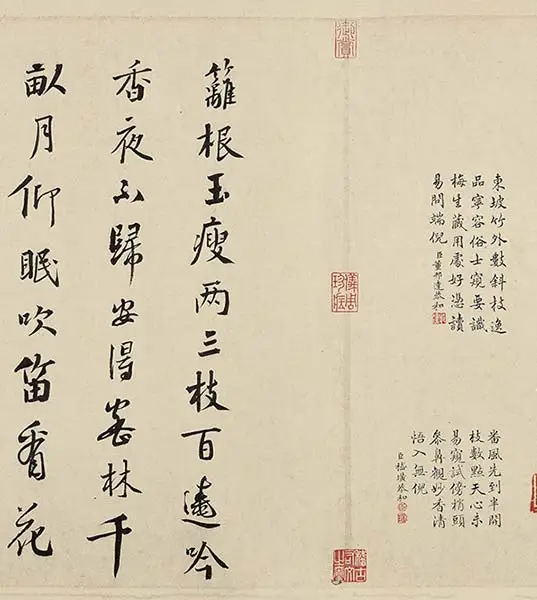 東坡竹外數斜枝逸
品寧容俗士窺要識
梅生藏用處好憑讀
易問端倪 臣董邦達恭和
番風先到半開
枝數點天心未
易窺試傍梢頭
參鼻觀妙香清
悟入無倪
臣嵇璜恭和
御賞
儀周珍藏
籬根玉瘦两三枝百遶吟
香夜不歸安得密林千
畝月仰眠吹笛看花